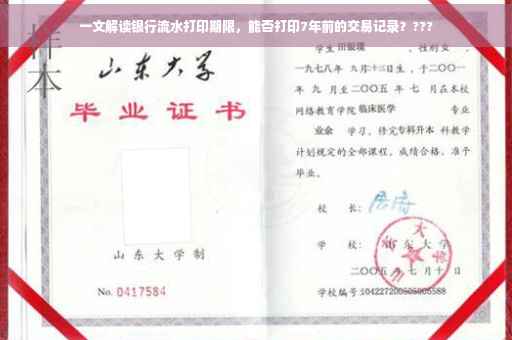 一文解读银行流水打印期限，能否打印7年前的交易记录？???
样本
山东大学
毕业证书
山东大学制
No. 0417584
学生 田银瑞 ，性别女 ，
一九七八年 九月十三日生，于二〇〇一
年 九 月至二〇〇五 年 七 月在本校
网络教育学院临床医学 专业
业余 学习，修完专科升本 科教学
计划规定的全部课程，成绩合格，准予
毕业。
校 长：
学 校： 山东大学
二〇〇五年七月十日
学校编号：104227200505005588